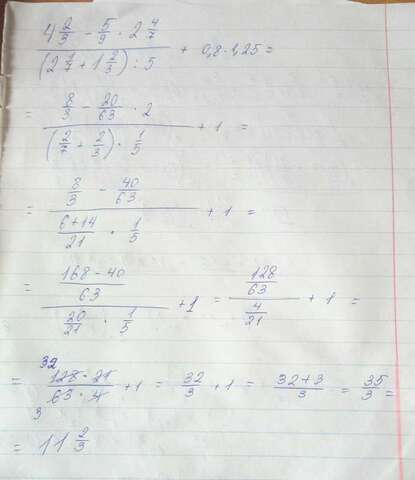 (4 2/3 − 5/9 · 2 4/7) / ((2 1/7 + 1 2/3) : 5) + 0,8 · 1,25 =
= (8/3 − 20/63 · 2) / ((2/7 + 2/3) · 1/5) + 1 =
= (8/3 − 40/63) / ((6+14)/21 · 1/5) + 1 =
= ((168 − 40)/63) / (20/21 · 1/5) + 1 = (128/63) / (4/21) + 1 =
32
= (128 · 21)/(63 · 4) + 1 = 32/3 + 1 = (32+3)/3 = 35/3 =
3
= 11 2/3